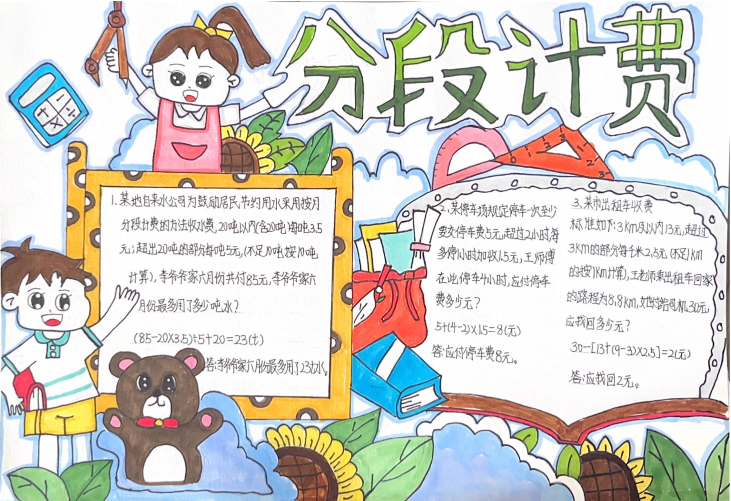 分段计费
1.某地自来水公司为鼓励居民节约用水采用按月
分段计费的方法收水费,20吨以内(含20吨)每吨3.5
元;超出20吨的部分每吨5元,(不足1吨按1吨
计算),李爷爷家六月份共付85元,李爷爷家六
月份最多用了多少吨水?
(85-20X3.5)÷5+20=23(t)
答:李爷爷家六月份最多用了23t水。
2.某停车场规定停车一次至少
要交停车费5元,超过2小时,每
多停1小时加收1.5元,王师傅
在此停车4小时,应付停车
费多少元?
5+(4-2)X1.5=8(元)
答:应付停车费8元。
3.某市出租车收费
标准如下:3km及以内13元,超过
3km的部分每千米2.5元(不足1km
的按1km计算),王老师乘出租车回家
的路程为8.8km,她付给司机30元
应找回多少元?
30-[13+(9-3)X2.5]=2(元)
答:应找回2元。